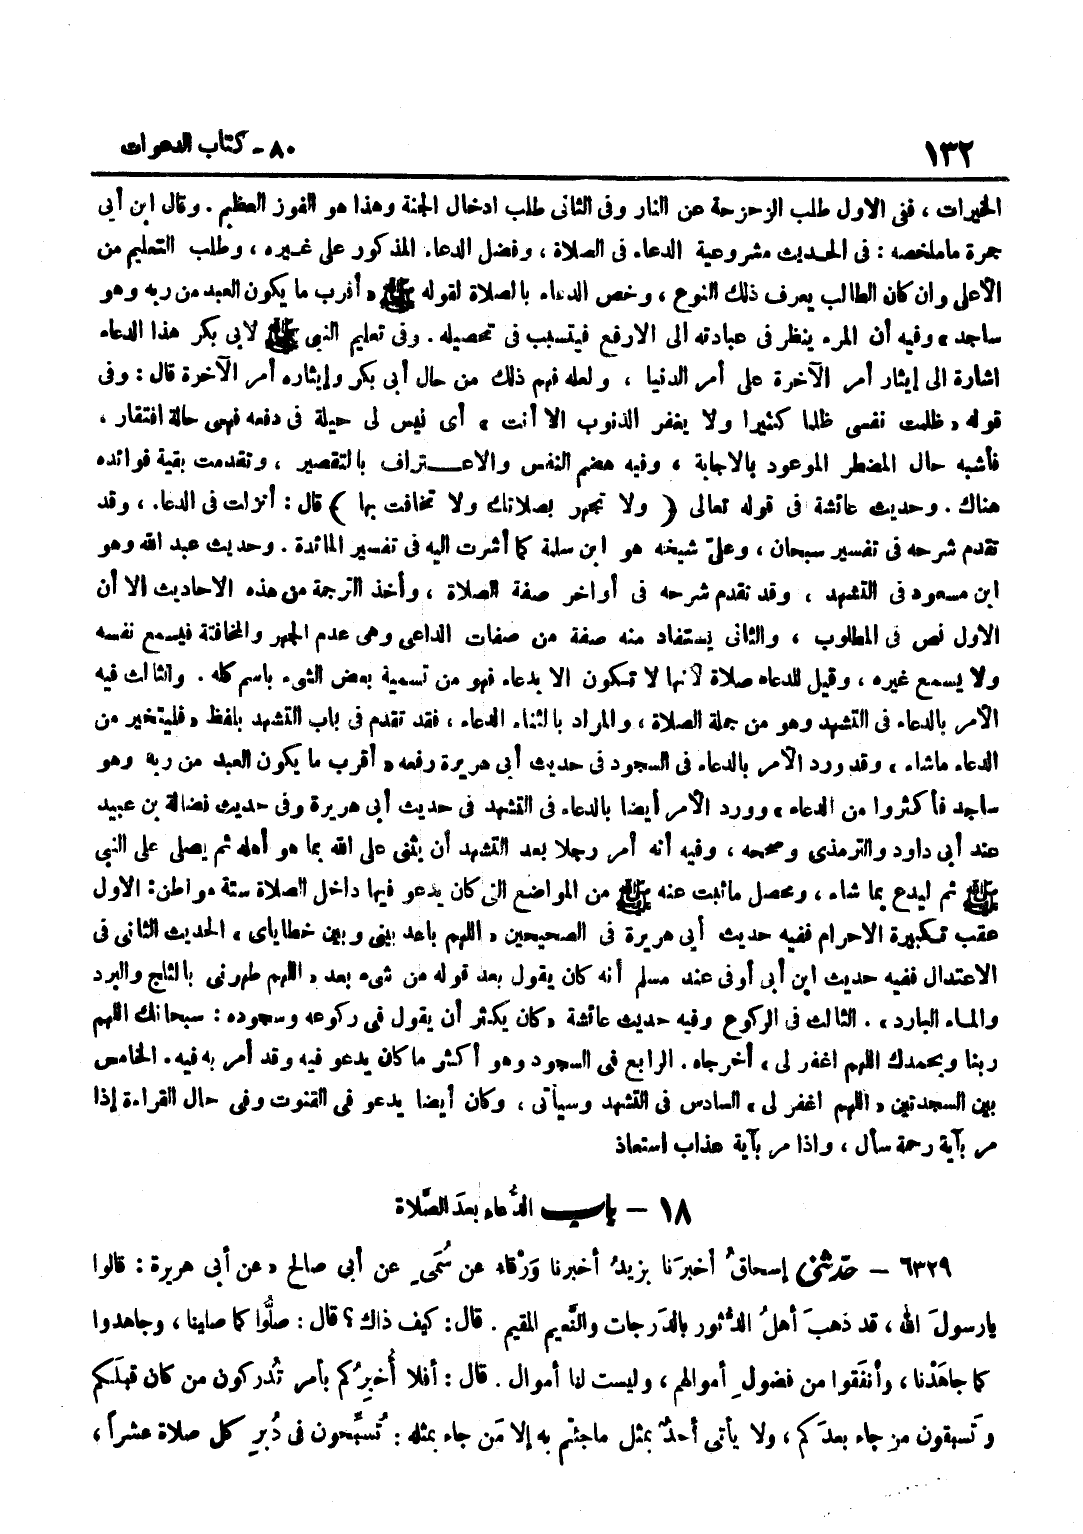 ١٣٢
٨٠ - كتاب الدعوات
الخيرات ، ففى الاول طلب الزحزحة عن النار وفى الثانى طلب ادخال الجنة وهذا هو الفوز العظيم . وقال ابن أبى
جمرة ماملخصه : فى الحديث مشروعية الدعاء فى الصلاة ، وفضل الدعاء المذكور على غيره ، وطلب التعليم من
الأعلى وان كان الطالب يعرف ذلك النوع ، وخص الدعاء بالصلاة لقوله ﷺ « أقرب ما يكون العبد من ربه وهو
ساجد » وفيه أن المرء ينظر فى عبادته الى الارفع فيتسبب فى تحصيله . وفى تعليم النبى ﷺ لابى بكر هذا الدعاء
اشارة الى إيثار أمر الآخرة على أمر الدنيا ، ولعله فهم ذلك من حال أبى بكر وإيثاره أمر الآخرة قال : وفى
قوله « ظلمت نفسى ظلما كثيرا ولا يغفر الذنوب الا أنت » أى ليس لى حيلة فى دفعه فهى حالة افتقار ،
فأشبه حال المضطر الموعود بالاجابة ، وفيه هضم النفس والاعتراف بالتقصير ، وتقدمت بقية فوائده
هناك . وحديث عائشة فى قوله تعالى ﴿ ولا تجهر بصلاتك ولا تخافت بها ﴾ قال : أنزلت فى الدعاء ، وقد
تقدم شرحه فى تفسير سبحان ، وعلىّ شيخه هو ابن سلمة كما أشرت اليه فى تفسير المائدة . وحديث عبد الله وهو
ابن مسعود فى التشهد ، وقد تقدم شرحه فى أواخر صفة الصلاة ، وأخذ الترجمة من هذه الاحاديث الا أن
الاول نص فى المطلوب ، والثانى يستفاد منه صفة من صفات الداعى وهى عدم الجهر والمخافتة فيسمع نفسه
ولا يسمع غيره ، وقيل للدعاء صلاة لأنها لا تكون الا بدعاء فهو من تسمية بعض الشىء باسم كله . والثالث فيه
الأمر بالدعاء فى التشهد وهو من جملة الصلاة ، والمراد بالثناء الدعاء ، فقد تقدم فى باب التشهد بلفظ « فليتخير من
الدعاء ماشاء » وقد ورد الأمر بالدعاء فى السجود فى حديث أبى هريرة رفعه « أقرب ما يكون العبد من ربه وهو
ساجد فأكثروا من الدعاء » وورد الأمر أيضا بالدعاء فى التشهد فى حديث أبى هريرة وفى حديث فضالة بن عبيد
عند أبى داود والترمذى وصححه ، وفيه أنه أمر رجلا بعد التشهد أن يثنى على الله بما هو أهله ثم يصلى على النبى
ﷺ ثم ليدع بما شاء ، ومحصل ماثبت عنه ﷺ من المواضع التى كان يدعو فيها داخل الصلاة ستة مواطن : الاول
عقب تكبيرة الاحرام ففيه حديث أبى هريرة فى الصحيحين « اللهم باعد بينى وبين خطاياى » الحديث الثانى فى
الاعتدال ففيه حديث ابن أبى أوفى عند مسلم أنه كان يقول بعد قوله من شىء بعد « اللهم طهرنى بالثلج والبرد
والماء البارد » . الثالث فى الركوع وفيه حديث عائشة « كان يكثر أن يقول فى ركوعه وسجوده : سبحانك اللهم
ربنا وبحمدك اللهم اغفر لى » أخرجاه . الرابع فى السجود وهو أكثر ما كان يدعو فيه وقد أمر به فيه . الخامس
بين السجدتين « اللهم اغفر لى » السادس فى التشهد وسيأتى ، وكان أيضا يدعو فى القنوت وفى حال القراءة إذا
مر بآية رحمة سأل ، واذا مر بآية عذاب استعاذ
١٨ - باب الدُّعاء بعدَ الصَّلاة
٦٣٢٩ - حدّثنى إسحاقُ أخبرَنا يزيدُ أخبرنا وَرْقاءُ عن سُمَىٍّ عن أبى صالح « عن أبى هريرة : قالوا
يارسولَ الله ، قد ذهبَ أهلُ الدُّثور بالدَّرجات والنَّعيم المقيم . قال : كيف ذاك ؟ قال : صلُّوا كما صلينا ، وجاهدوا
كما جاهَدْنا ، وأنفَقوا من فضولِ أموالهم ، وليست لنا أموال . قال : أفلا أُخبِرُكم بأمر تُدركون من كان قبلَكم
وتَسبقون من جاء بعدَكم ، ولا يأتى أحدٌ بمثل ماجئتم به إلا مَن جاء بمثله : تُسبِّحون فى دُبرِ كل صلاة عشراً ،